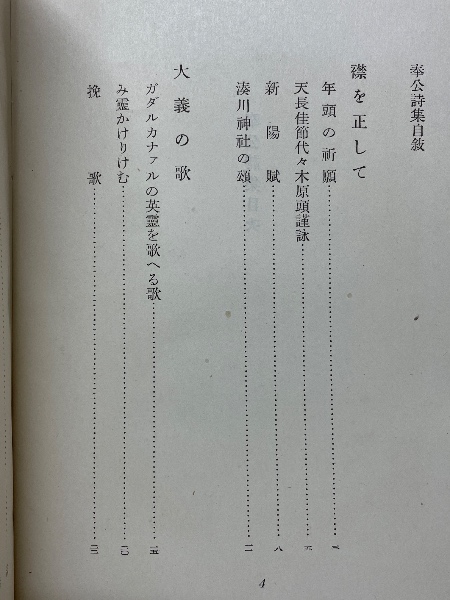 奉公詩集自敘
襟を正して
年頭の祈願
天長佳節代々木原頭謹詠
新陽賦 八
湊川神社の頌 一一
大義の歌
ガダルカナァルの英靈を歌へる歌 一五
み靈かけりけむ 二〇
挽歌
4